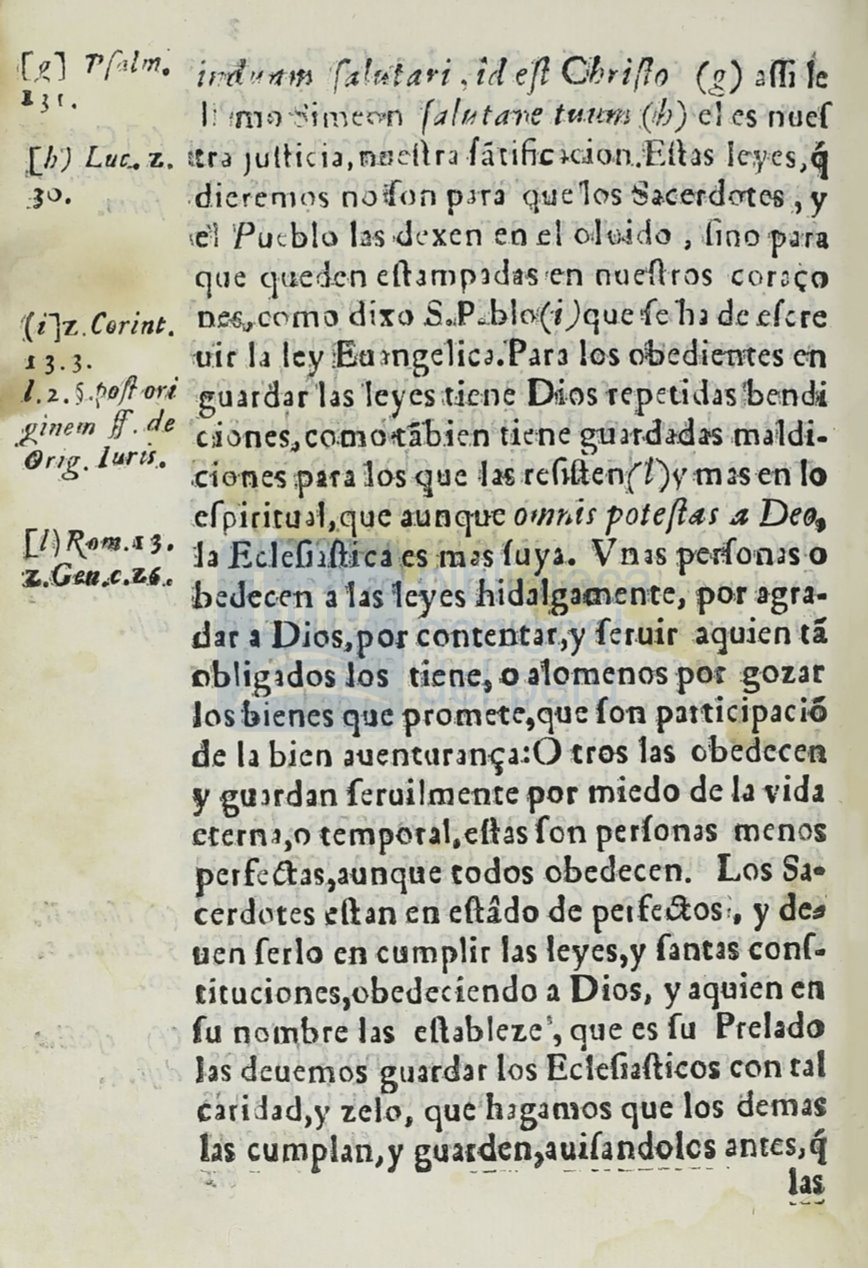 [g] Psalm.
131.
[h) Luc. 2.
30.
(i]2. Corint.
13. 3.
l. 2. §. post ori
ginem ff. de
Orig. Iuris.
[l) Rom. 13.
2. Gen. c. 26.
induam ſalutari, id eſt Chriſto (g) aſſi le
llamo Simeon ſalutare tuum (h) el es nueſ
tra juſticia, nueſtra ſãtificacion. Eſtas leyes, q́
dieremos no ſon para que los Sacerdotes, y
el Pueblo las dexen en el oluido, ſino para
que queden eſtampadas en nueſtros coraço
nes, como dixo S. Pablo (i) que ſe ha de eſcre
uir la ley Euangelica. Para los obedientes en
guardar las leyes tiene Dios repetidas bendi
ciones, como tãbien tiene guardadas maldi-
ciones para los que las reſiſten (l) y mas en lo
eſpiritual, que aunque omnis poteſtas a Deo,
la Ecleſiaſtica es mas ſuya. Vnas perſonas o
bedecen a las leyes hidalgamente, por agra-
dar a Dios, por contentar, y ſeruir aquien tã
obligados los tiene, o alomenos por gozar
los bienes que promete, que ſon participació
de la bien auenturança: O tros las obedecen
y guardan ſeruilmente por miedo de la vida
eterna, o temporal, eſtas ſon perſonas menos
perfectas, aunque todos obedecen. Los Sa-
cerdotes eſtan en eſtâdo de perfectos, y de-
uen ſerlo en cumplir las leyes, y ſantas conſ-
tituciones, obedeciendo a Dios, y aquien en
ſu nombre las eſtableze, que es ſu Prelado
las deuemos guardar los Ecleſiaſticos con tal
caridad, y zelo, que hagamos que los demas
las cumplan, y guarden, auiſandoles antes, q́
las